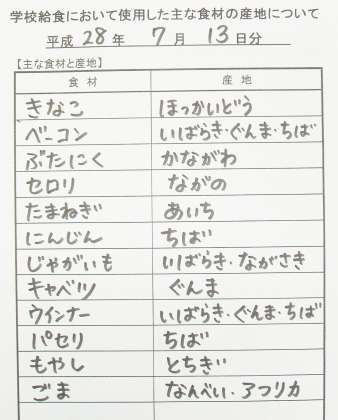 学校給食において使用した主な食材の産地について
平成 28 年 7 月 13 日分
【主な食材と産地】
食材 産地
きなこ ほっかいどう
ベーコン いばらき・ぐんま・ちば
ぶたにく かながわ
セロリ ながの
たまねぎ あいち
にんじん ちば
じゃがいも いばらき・ながさき
キャベツ ぐんま
ウインナー いばらき・ぐんま・ちば
パセリ ちば
もやし とちぎ
ごま なんべい・アフリカ